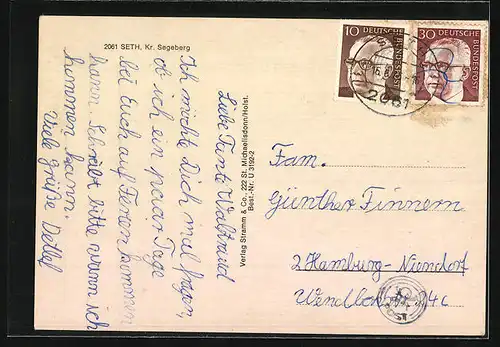 2061 SETH, Kr. Segeberg
Liebe Tante Waltraud
Ich möchte Dich mal fragen,
ob ich ein paar Tage
bei Euch auf Ferien kommen
kann. Schreibt bitte wann ich
kommen kann.
Viele Grüße Detlef
Verlag Stramm & Co., 222 St. Michaelisdonn/Holst.
Best.-Nr. U 3192-2
10
DEUTSCHE
BUNDESPOST
30
DEUTSCHE
BUNDESPOST
2061
Fam.
Günther Finnern
2 Hamburg-Niendorf
34c